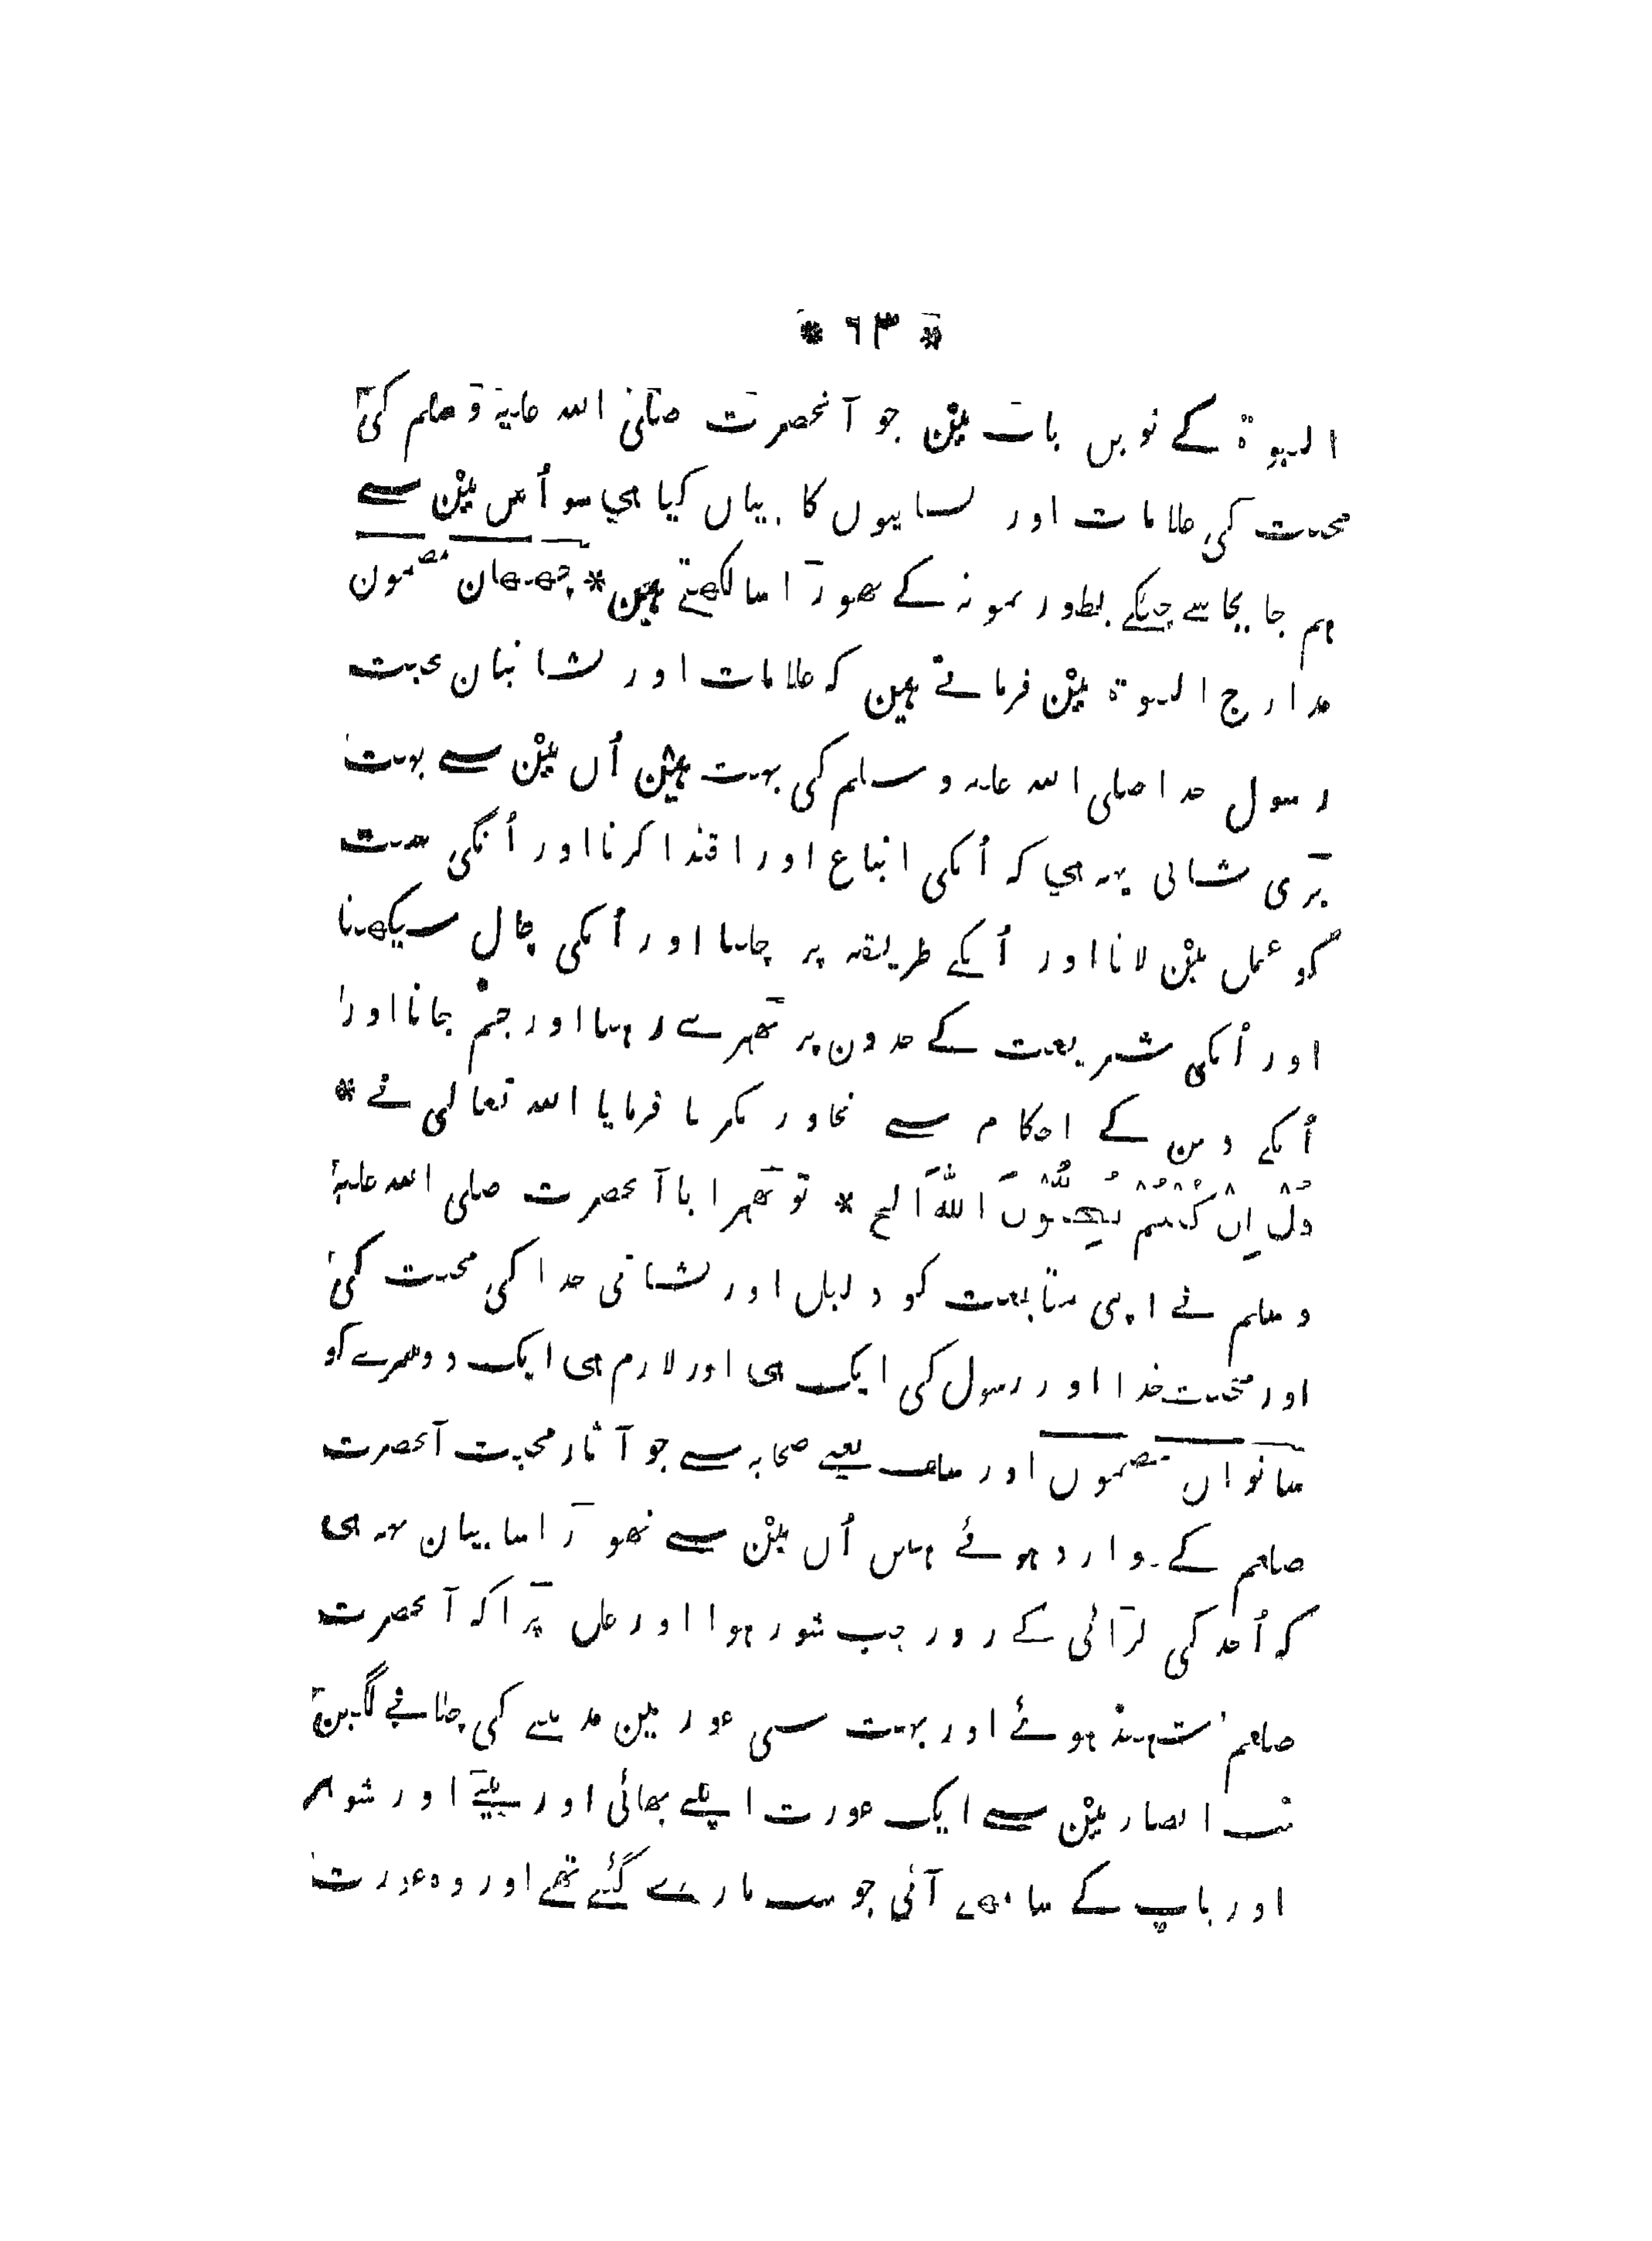 * ٦٣ *
النبوة کے نویں باب میں جو آنحضرت صلّی اللہ علیہ و سلم کی
محبت کی علامات اور نسانیوں کا بیان کیا ہی سو اُس میں سے
ہم جابجا سے چنکے بطور نمونہ کے تھوڑا سا لکھتے ہیں * چھٹھان مضمون
مدارج النبوة میں فرماتے ہین کہ علامات اور نشانیان محبت
رسول خدا صلی اللہ علیہ و سلم کی بہت ہین اُن میں سے بہت
بڑی نشانی یہہ ہی کہ اُنکی اتباع اور اقتدا کرنا اور اُنکی سنت
کو عمل میں لانا اور اُنکے طریقہ پر چلنا اور اُنکی چال سیکھنا
اور اُنکی شریعت کے حدون پر ٹھہرے رہنا اور جم جانا اور
اُنکے دین کے احکام سے تجاوز نکرنا فرمایا اللہ تعالی نے *
قُلْ اِنْ كُنْتُمْ تُحِبُّوْنَ اللّٰهَ الخ * تو ٹھہرایا آنحضرت صلی اللہ علیہ
و سلم نے اپنی متابعت کو دلیل اور نشانی خدا کی محبت کی
اور محبت خدا اور رسول کی ایک ہی اور لازم ہی ایک دوسرے کو
ساتواں مضموں اور سلف یعنے صحابہ سے جو آثار محبت آنحضرت
صلعم کے وارد ہوئے ہیں اُن میں سے تھوڑا سا بیان یہہ ہی
کہ اُحد کی لڑائی کے روز جب شور ہوا اور غل پڑا کہ آنحضرت
صلعم شہید ہوئے اور بہت سی عورتیں مدینے کی چلانے لگین
تب انصار میں سے ایک عورت اپنے بھائی اور بیٹے اور شوہر
اور باپ کے سامھنے آئی جو سب مارے گئے تھے اور وہ عورت